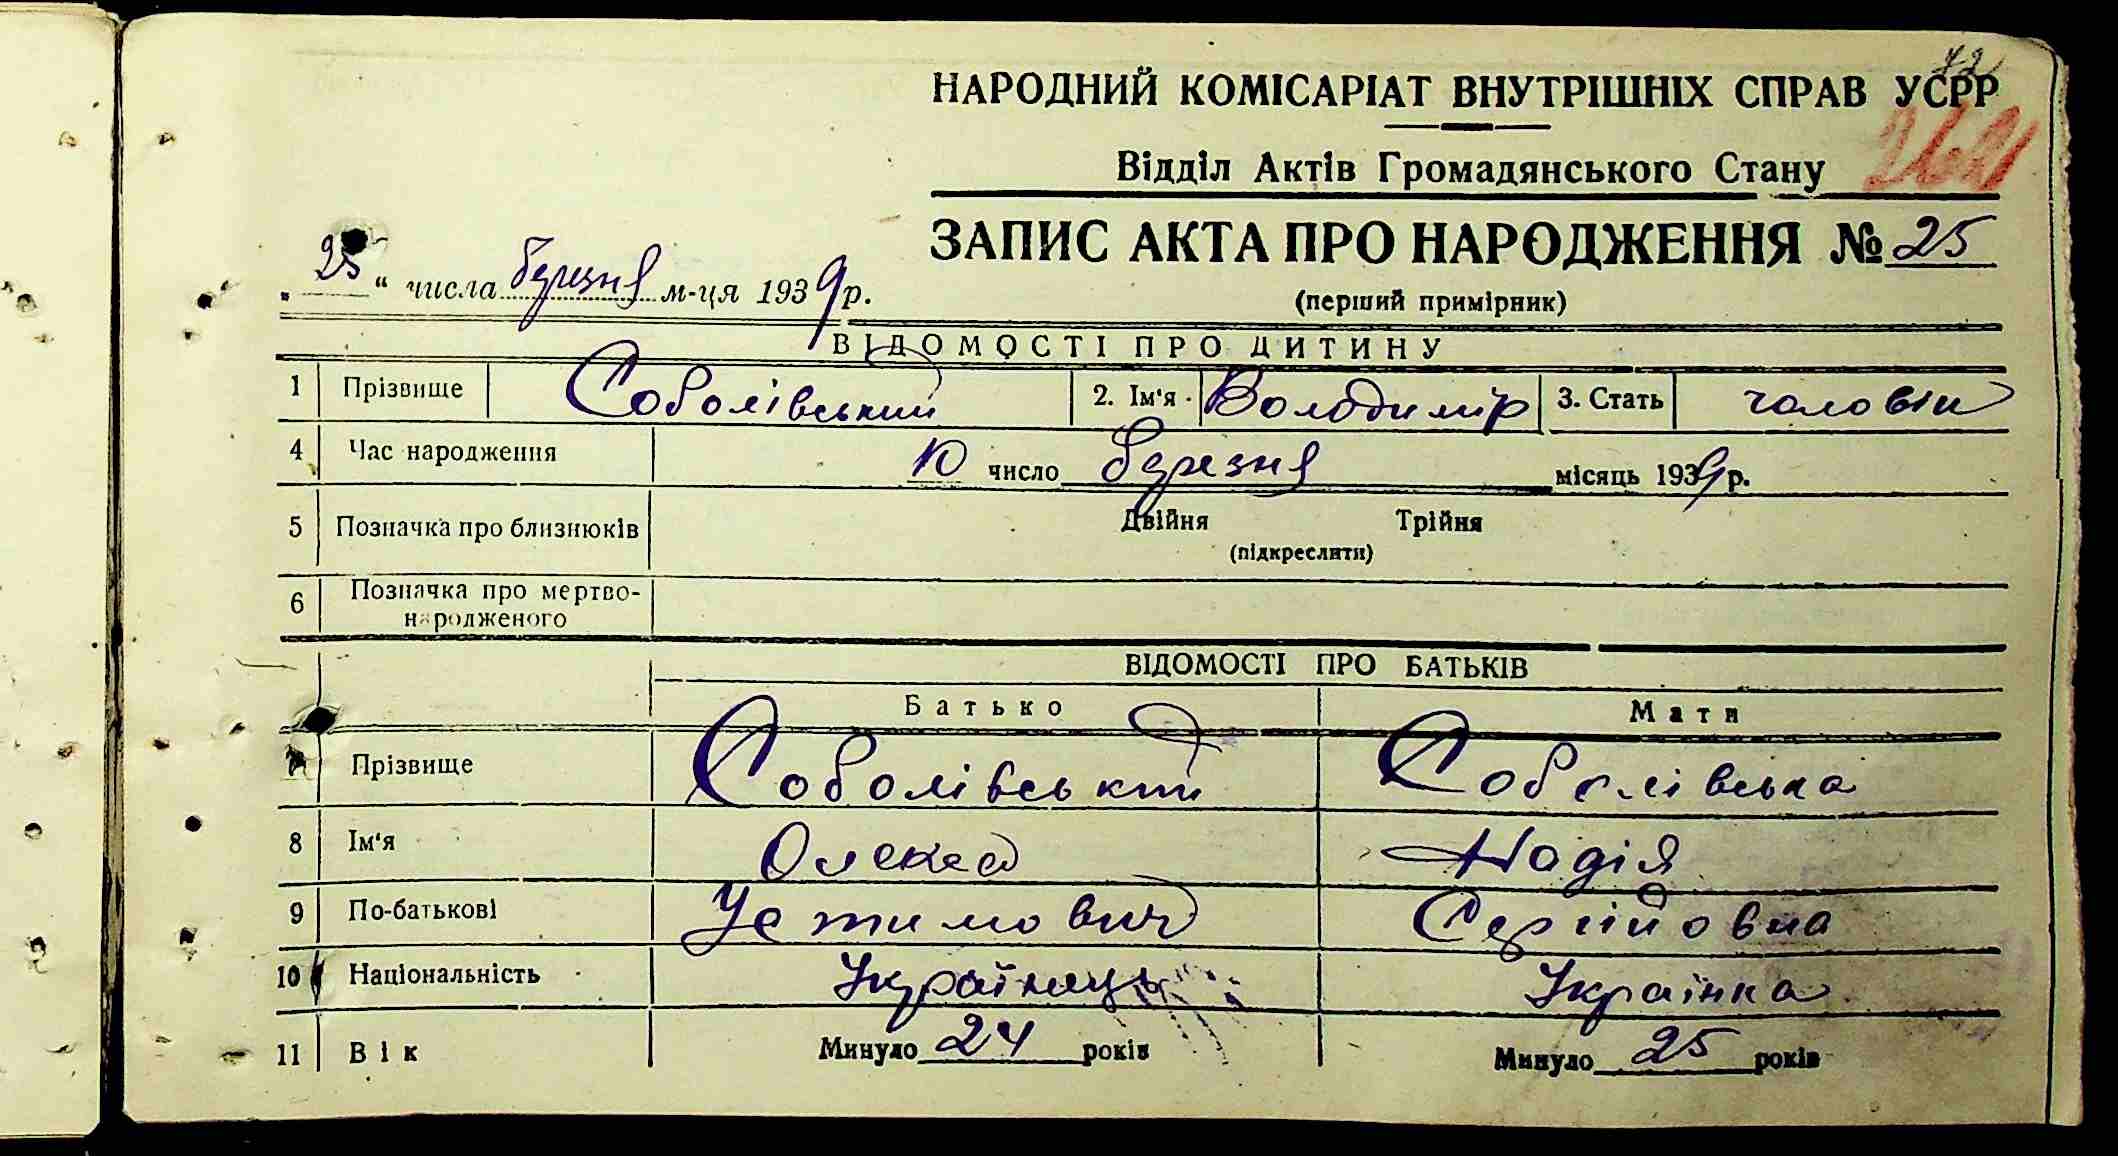 72
НАРОДНИЙ КОМІСАРІАТ ВНУТРІШНІХ СПРАВ УСРР
Відділ Актів Громадянського Стану
ЗАПИС АКТА ПРО НАРОДЖЕННЯ № 25
(перший примірник)
„25“ числа березня м-ця 1939 р.
ВІДОМОСТІ ПРО ДИТИНУ
1 Прізвище Соболівський 2. Ім'я Володимір 3. Стать чоловіч
4 Час народження 10 число березня місяць 1939 р.
5 Позначка про близнюків Двійня Трійня
(підкреслити)
6 Позначка про мертво-
народженого
ВІДОМОСТІ ПРО БАТЬКІВ
Батько Мати
Прізвище Соболівський Соболівська
8 Ім'я Олекса Надія
9 По-батькові Устимович Сергійовна
10 Національність Українець Українка
11 Вік Минуло 24 років Минуло 25 років